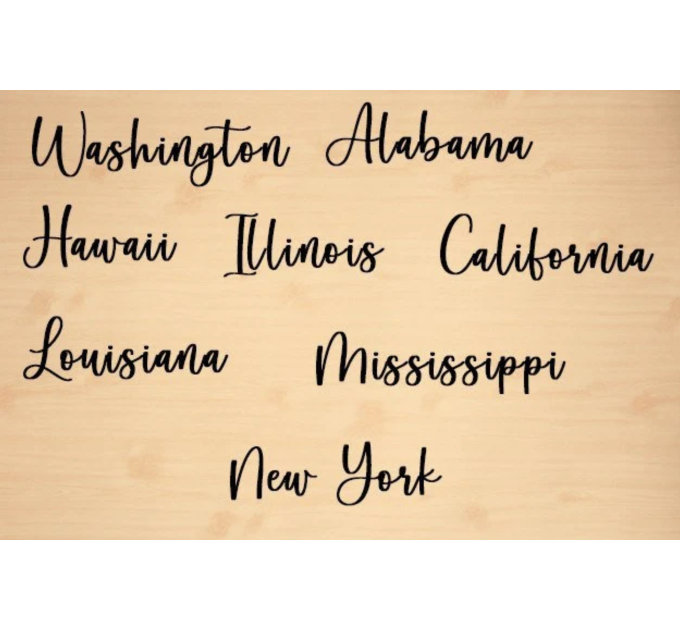 Washington Alabama
Hawaii Illinois California
Louisiana Mississippi
New York